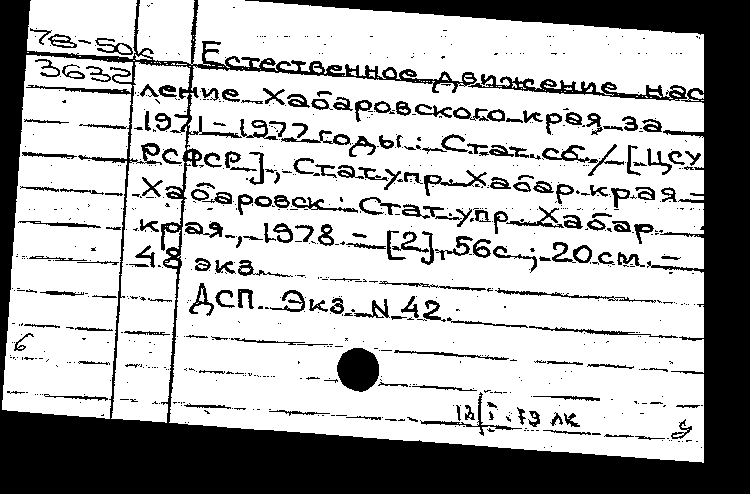 78-50к
3632
Естественное движение нас
ление Хабаровского края за
1971-1977 годы : Стат. сб. / [ЦСУ
РСФСР], Стат. упр. Хабар. края =
Хабаровск : Стат. упр. Хабар.
края, 1978 - [2], 56с ; 20 см. -
48 экз.
ДСП. Экз. N 42.
6
12/I.79 лк